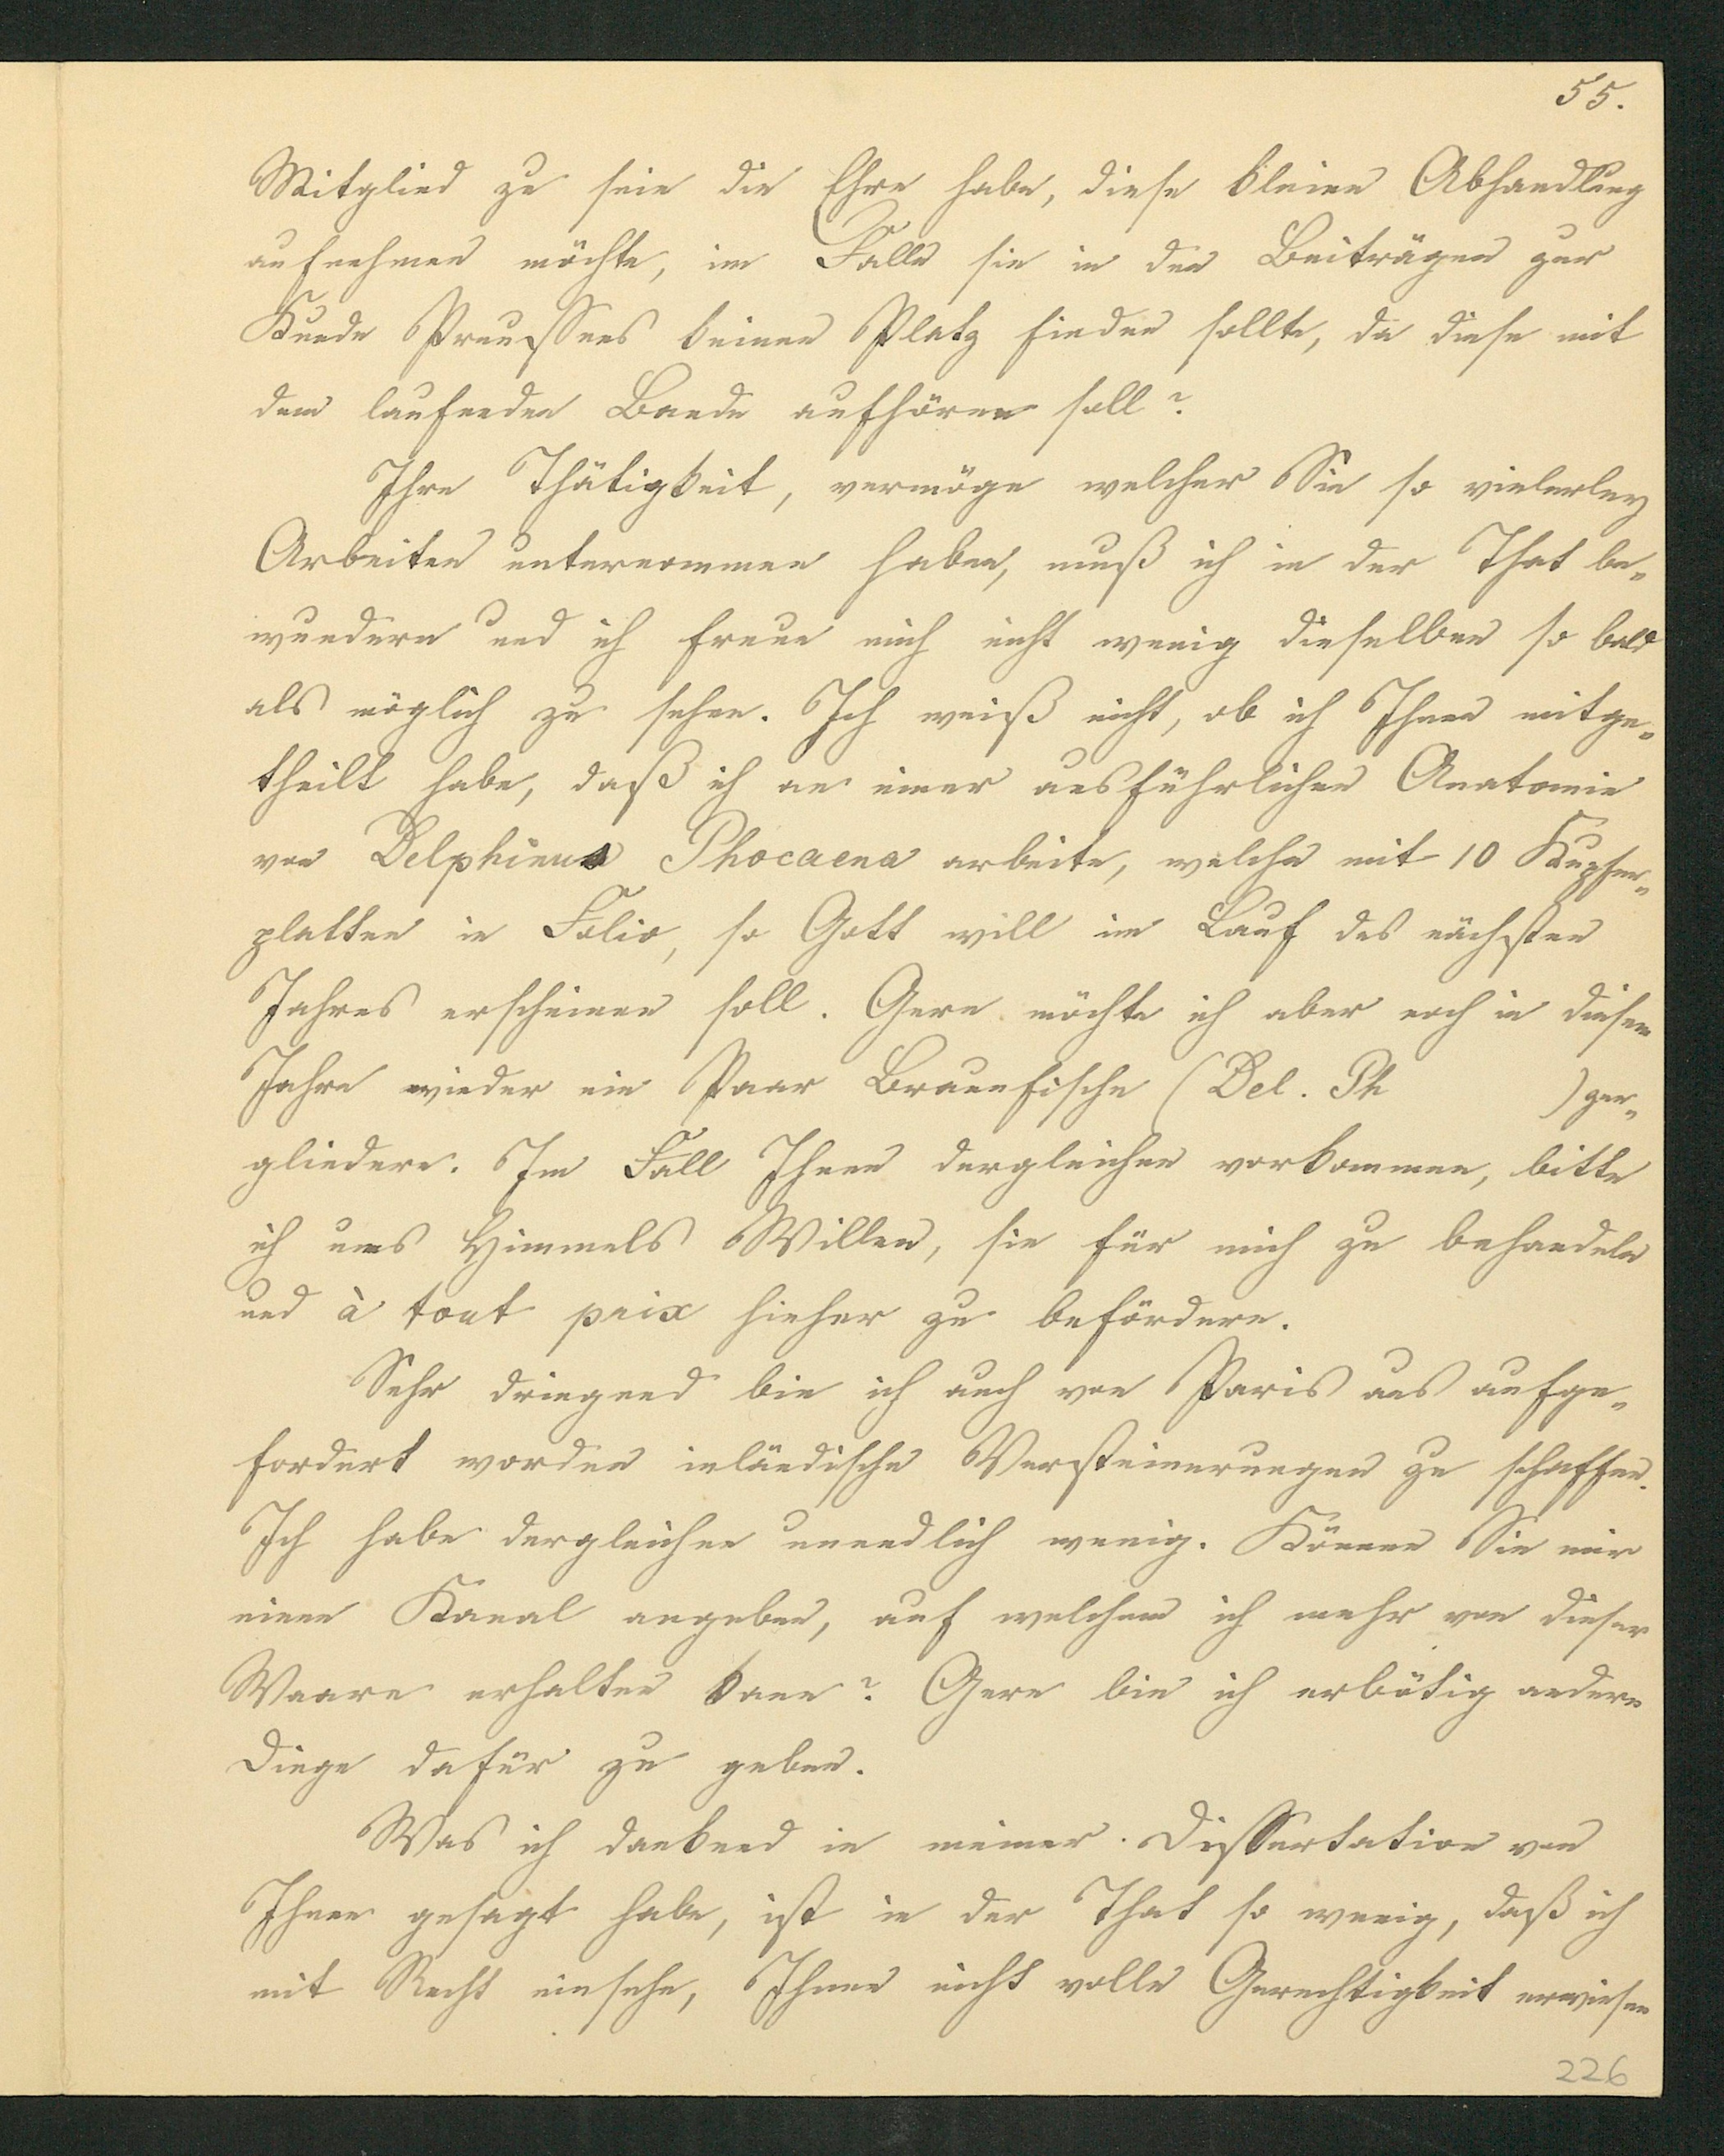 55.
Mitglied zu sein die Ehre habe, diese kleine Abhandlung
aufnehmen möchte, im Falle sie in den Beiträgen zur
Kunde Preußens keinen Platz finden sollte, da diese mit
dem laufenden Bande aufhören soll?
Ihre Thätigkeit, vermöge welcher Sie so vielerley
Arbeiten unternommen haben, muß ich in der That be„
wundern und ich freue mich nicht wenig dieselben so bald
als möglich zu sehen. Ich weiß nicht, ob ich Ihnen mitge„
theilt habe, daß ich an einer ausführlichen Anatomie
von Delphinus Phocaena arbeite, welche mit 10 Kupfer„
platten in Folio, so Gott will im Lauf des nächsten
Jahres erscheinen soll. Gern möchte ich aber noch in diesem
Jahre wieder ein Paar Braunfische (Del. Ph ) zer„
gliedern. Im Fall Ihnen dergleichen vorkommen, bitte
ich ums Himmels Willen, sie für mich zu behandeln
und à tout prix hieher zu befördern.
Sehr dringend bin ich auch von Paris aus aufge„
fordert worden inländische Versteinerungen zu schaffen.
Ich habe dergleichen unendlich wenig. Können Sie mir
einen Kanal angeben, auf welchem ich mehr von dieser
Waare erhalten kann? Gern bin ich erbötig andere
Dinge dafür zu geben.
Was ich dankend in meiner Dissertation von
Ihnen gesagt habe, ist in der That so wenig, daß ich
mit Recht einsehe, Ihnen nicht volle Gerechtigkeit erwiesen
226